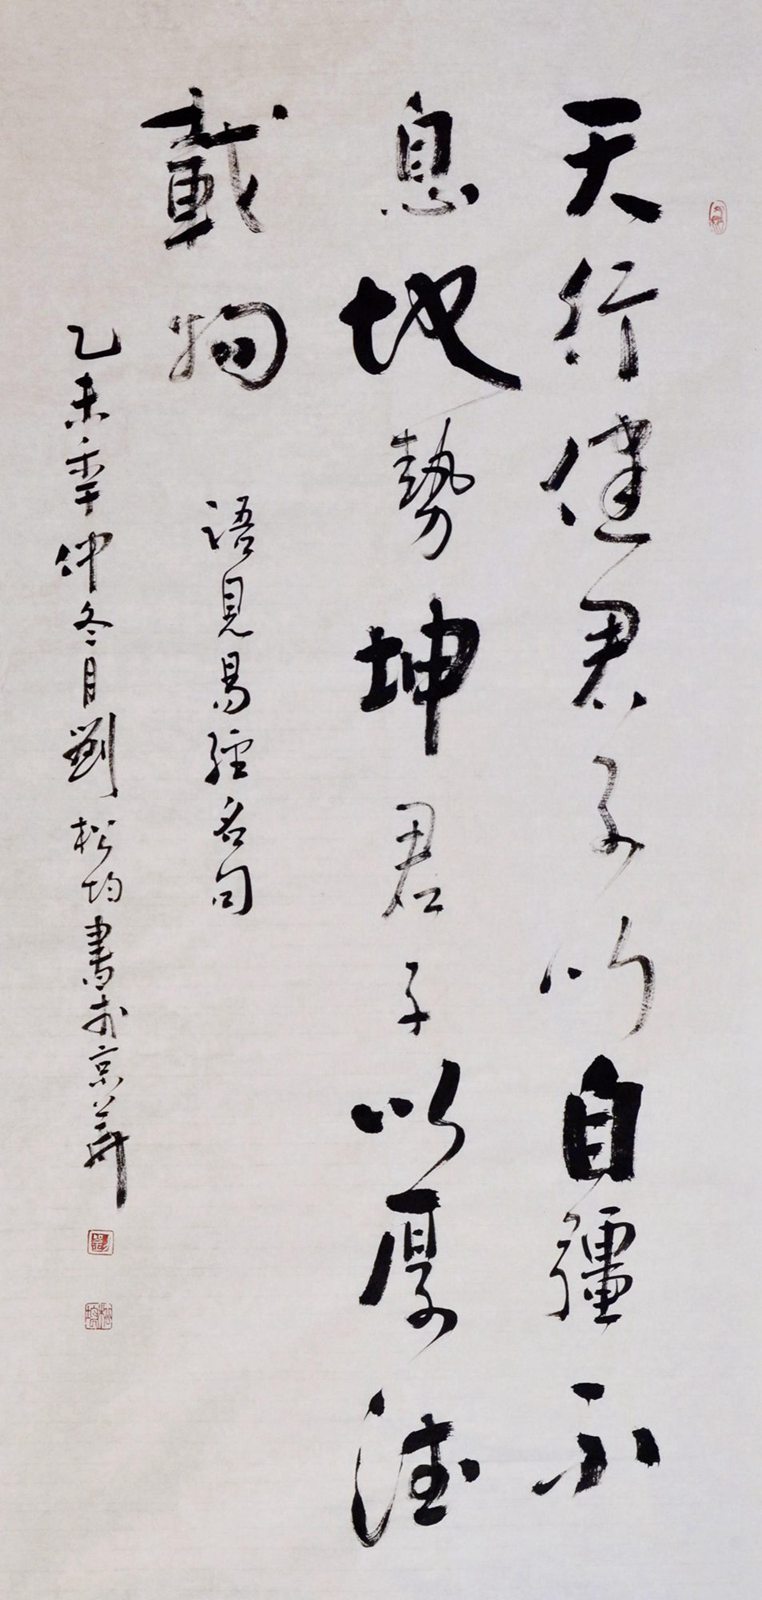 天行健君子以自彊不
息地勢坤君子以厚德
載物
語見易經名句
乙未年仲冬月劉松均書於京華